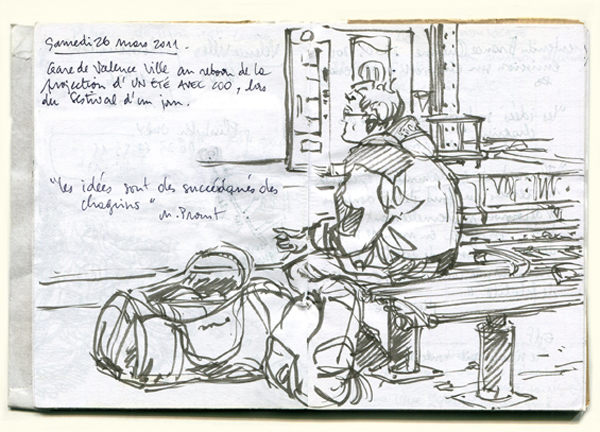 Samedi 26 mars 2011.
Gare de Valence Ville au retour de la
projection d'UN ÉTÉ AVEC COO, lors
du festival d'un jour.
"Les idées sont des succédanés des
chagrins" 
M. Proust